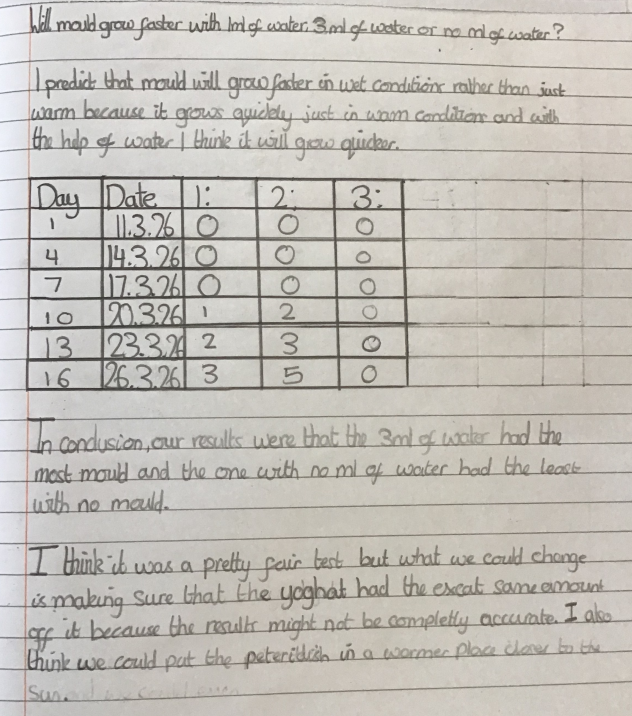 Will mould grow faster with 1ml of water, 3ml of water or no ml of water?
I predict that mould will grow faster in wet conditions rather than just
warm because it grows quickely just in warm conditions and with
the help of water I think it will grow quicker.
Day Date 1: 2: 3:
1 11.3.26 0 0 0
4 14.3.26 0 0 0
7 17.3.26 0 0 0
10 20.3.26 1 2 0
13 23.3.26 2 3 0
16 26.3.26 3 5 0
In conclusion, our results were that the 3ml of water had the
most mould and the one with no ml of water had the least
with no mould.
I think it was a pretty fair test but what we could change
is making sure that the yoghat had the excat same amount
off it because the results might not be completly accurate. I also
think we could put the peteridish in a warmer place closer to the
sun.